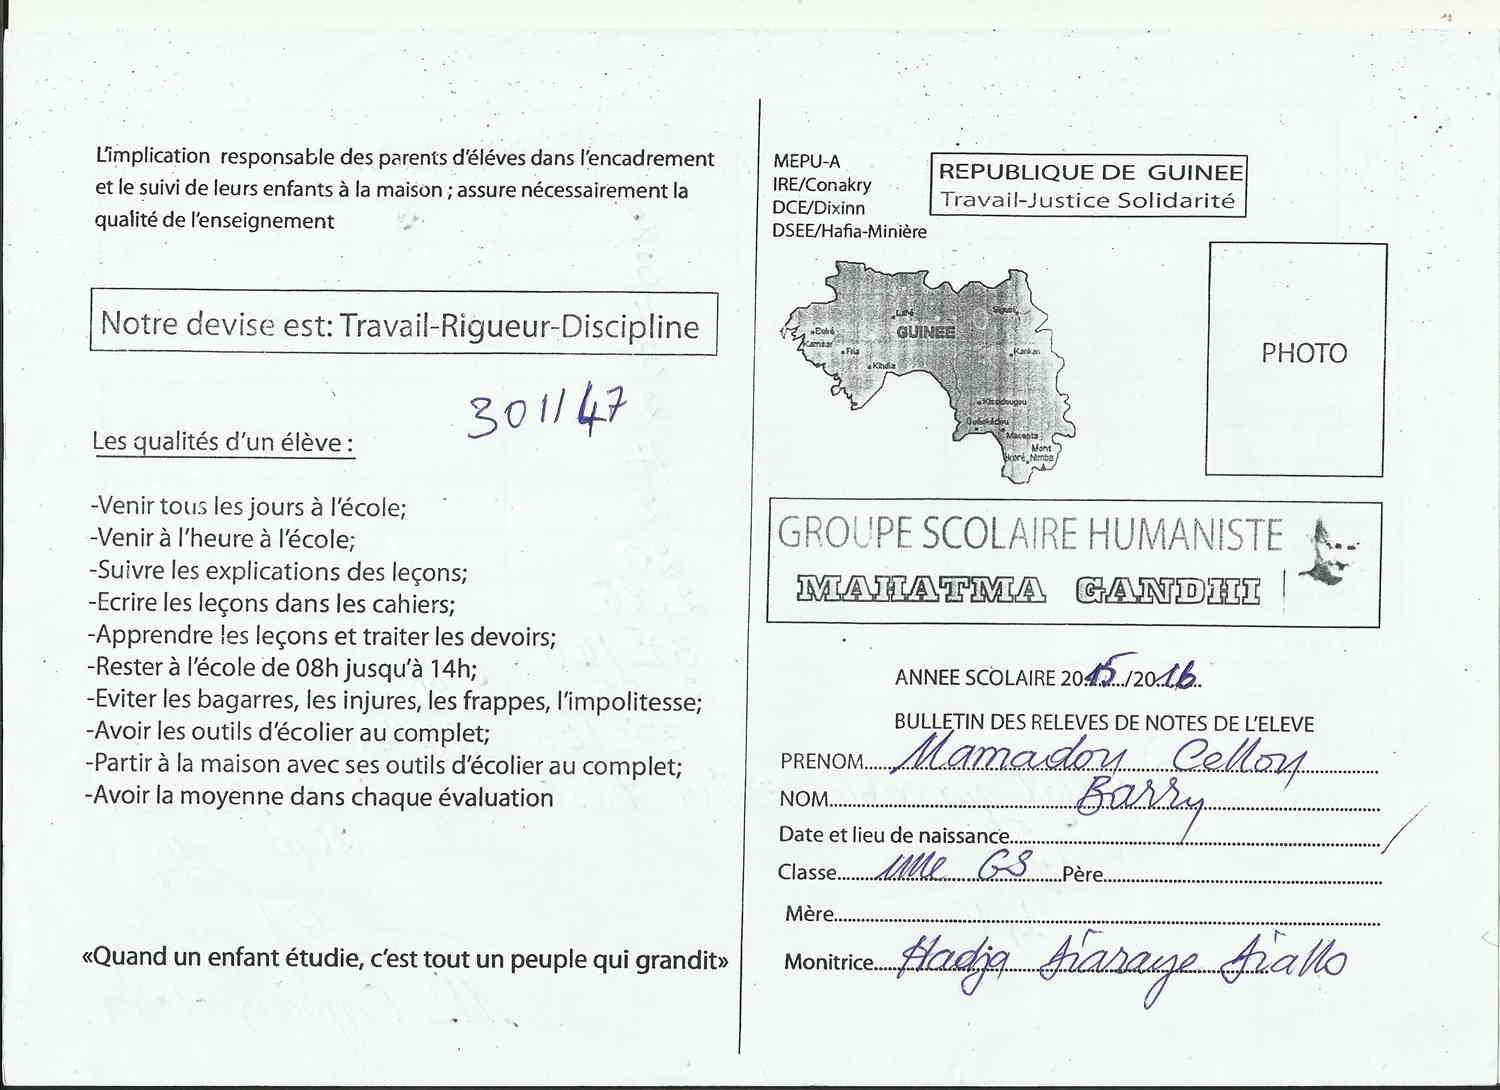 L'implication responsable des parents d'éléves dans l'encadrement
et le suivi de leurs enfants à la maison ; assure nécessairement la
qualité de l'enseignement
Notre devise est: Travail-Rigueur-Discipline
301/47
Les qualités d'un élève :
-Venir tous les jours à l'école;
-Venir à l'heure à l'école;
-Suivre les explications des leçons;
-Ecrire les leçons dans les cahiers;
-Apprendre les leçons et traiter les devoirs;
-Rester à l'école de 08h jusqu'à 14h;
-Eviter les bagarres, les injures, les frappes, l'impolitesse;
-Avoir les outils d'écolier au complet;
-Partir à la maison avec ses outils d'écolier au complet;
-Avoir la moyenne dans chaque évaluation
«Quand un enfant étudie, c'est tout un peuple qui grandit»
MEPU-A
IRE/Conakry
DCE/Dixinn
DSEE/Hafia-Minière
REPUBLIQUE DE GUINEE
Travail-Justice Solidarité
Labé
Siguiri
GUINEE
Boké
Kamsar
Fria
Kindia
Kankan
Kissidougou
Guékédou
Macenta
Mont
Nimba
PHOTO
GROUPE SCOLAIRE HUMANISTE
MAHATMA GANDHI
ANNEE SCOLAIRE 2015/2016
BULLETIN DES RELEVES DE NOTES DE L'ELEVE
PRENOM Mamadou Cellou
NOM Barry
Date et lieu de naissance
Classe GS Père
Mère
Monitrice Hadja Diaraye Diallo